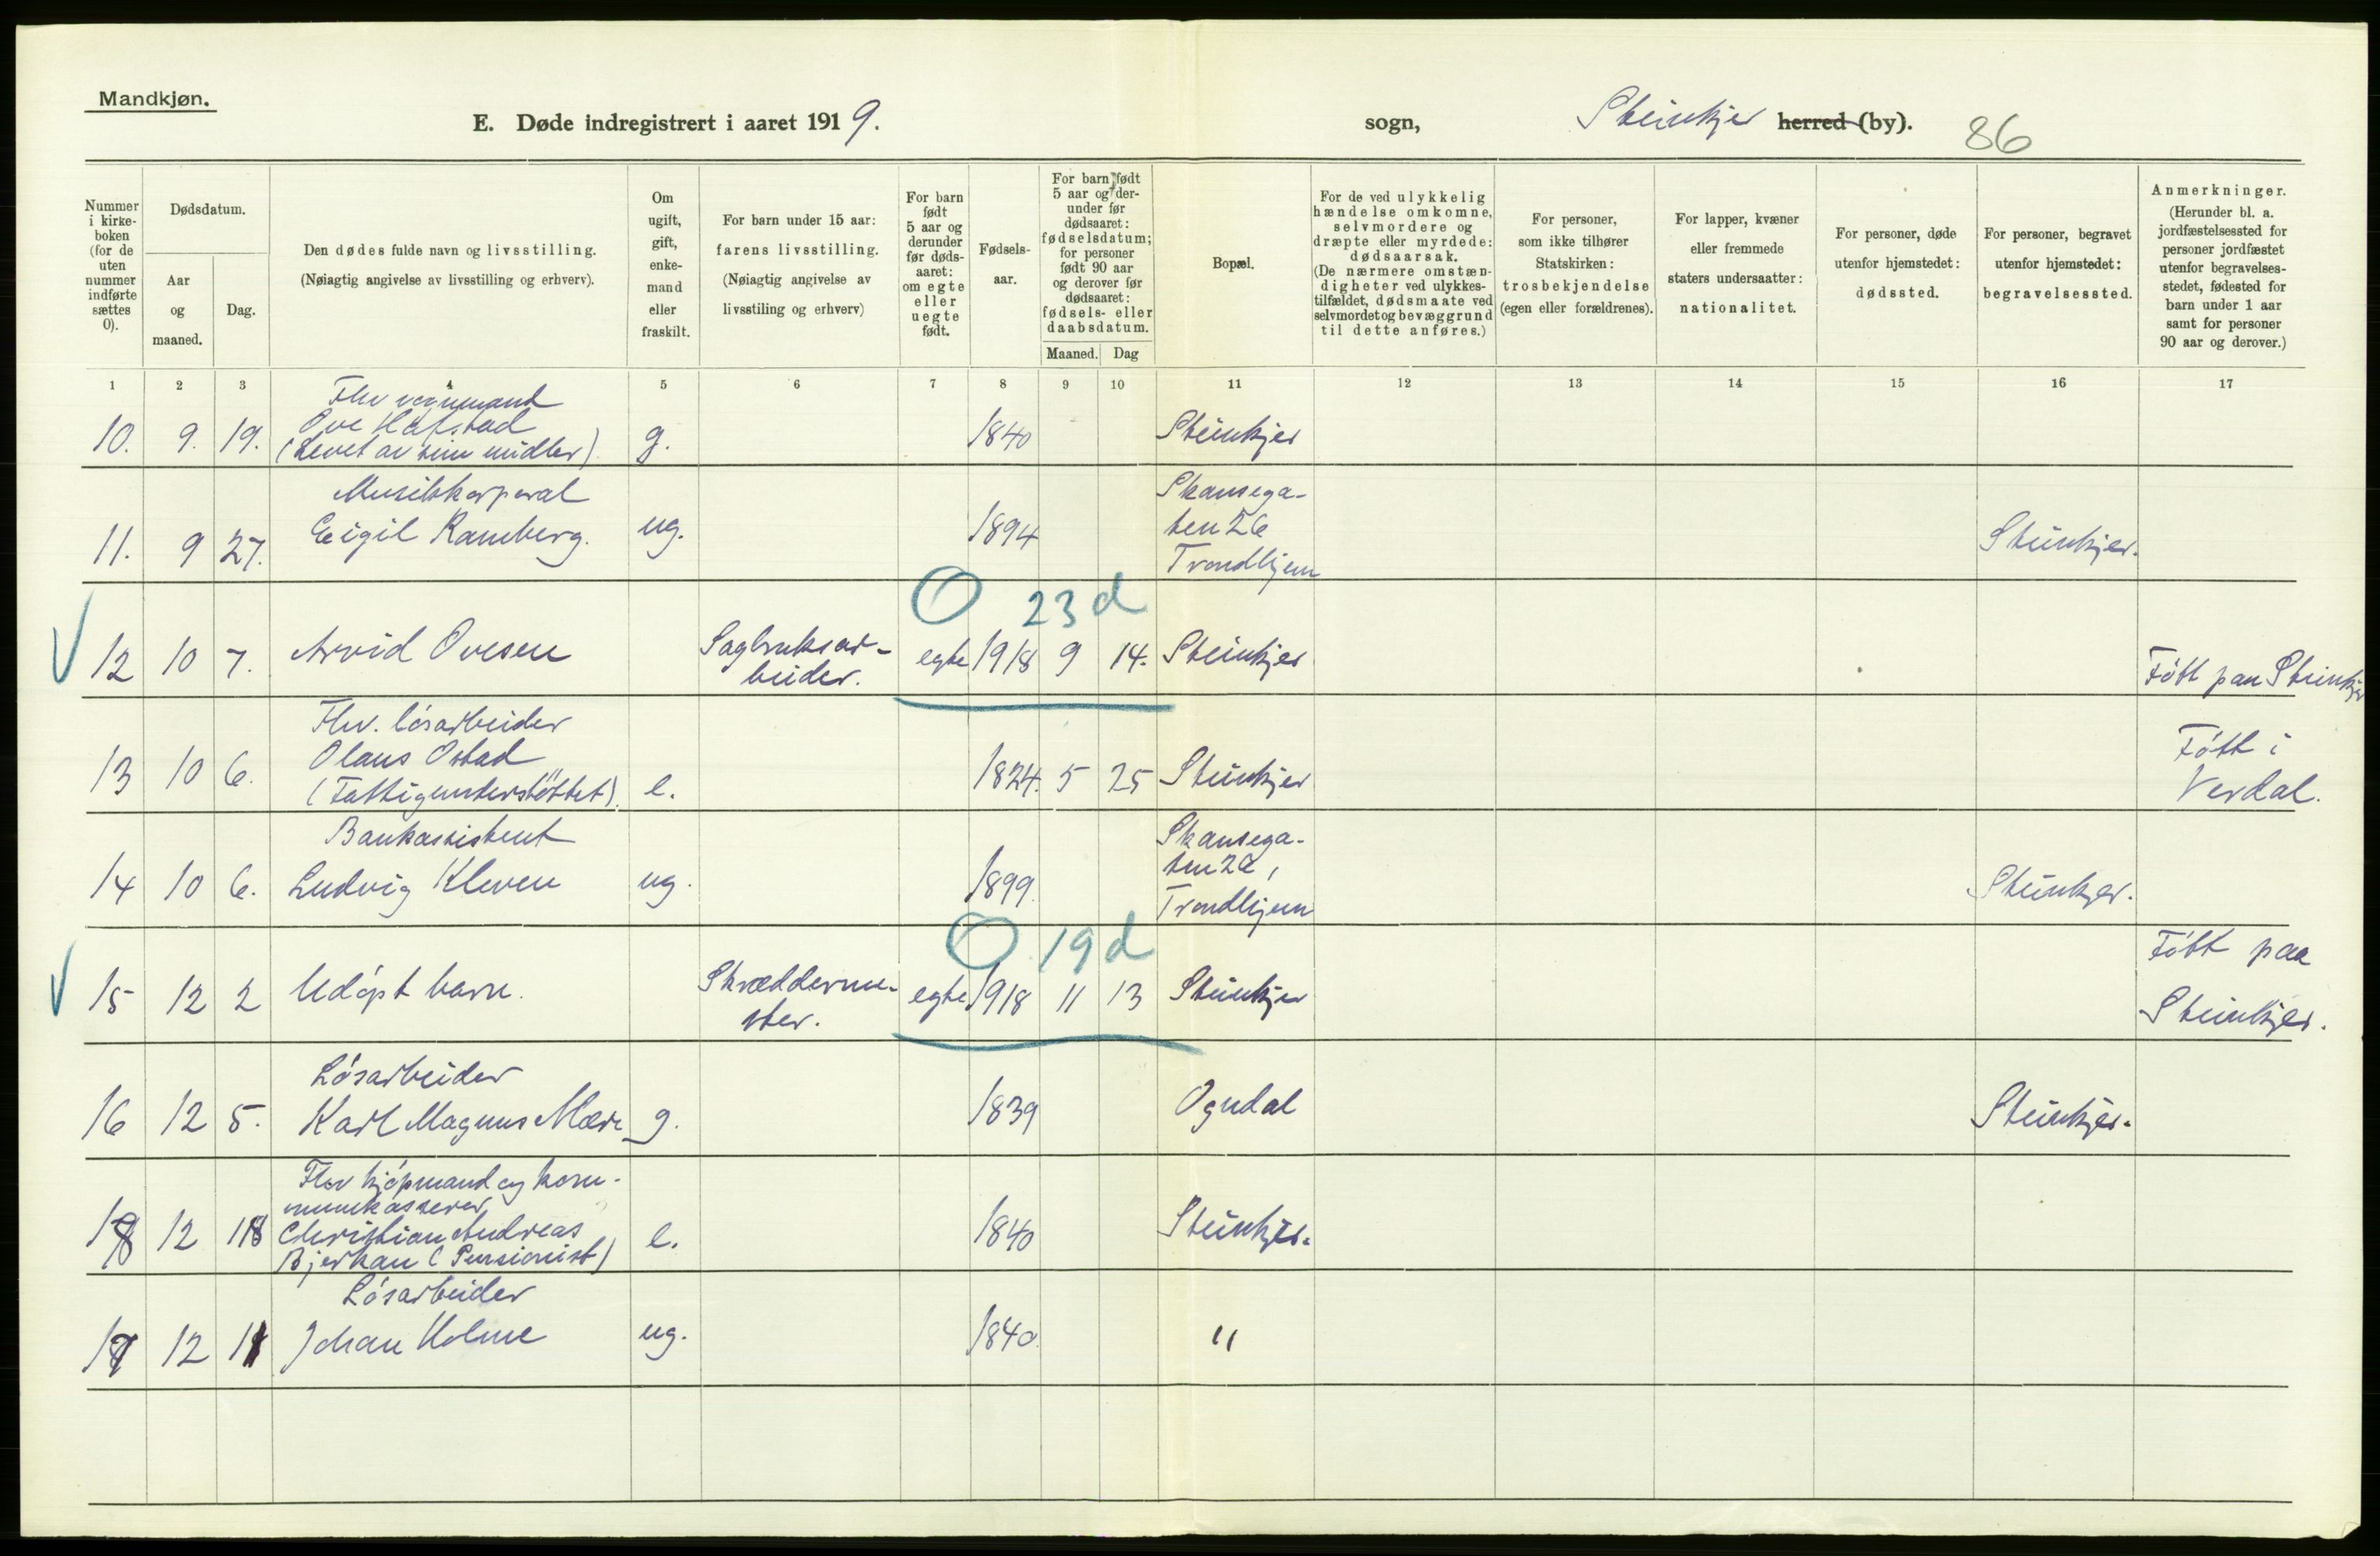 Mandkjøn.
E. Døde indregistrert i aaret 1919.
sogn,
Steinkjer herred (by).
86
Nummer i kirke-boken (for de uten nummer indførte sættes 0).
Dødsdatum.
Aar og maaned.
Dag.
Den dødes fulde navn og livsstilling.
(Nøiagtig angivelse av livsstilling og erhverv).
Om ugift, gift, enke-mand eller fraskilt.
For barn under 15 aar:
farens livsstilling.
(Nøiagtig angivelse av livsstiling og erhverv)
For barn født 5 aar og derunder før døds-aaret: om egte eller uegte født.
Fødsels-aar.
For barn født 5 aar og der-under før dødsaaret: fødselsdatum; for personer født 90 aar og derover før dødsaaret: fødsels- eller daabsdatum.
Maaned. Dag
Bopæl.
For de ved ulykkelig hændelse omkomne, selvmordere og dræpte eller myrdede: dødsaarsak.
(De nærmere omstæn-digheter ved ulykkes-tilfældet, dødsmaate ved selvmordet og bevæggrund til dette anføres.)
For personer, som ikke tilhører Statskirken: trosbekjendelse (egen eller forældrenes).
For lapper, kvæner eller fremmede staters undersaatter: nationalitet.
For personer, døde utenfor hjemstedet: dødssted.
For personer, begravet utenfor hjemstedet: begravelsessted.
Anmerkninger.
(Herunder bl. a. jordfæstelsessted for personer jordfæstet utenfor begravelses-stedet, fødested for barn under 1 aar samt for personer 90 aar og derover.)
1 2 3 4 5 6 7 8 9 10 11 12 13 14 15 16 17
Fhv vognmand
Ove Hafstad
10. 9. 19. (Levet av sine midler) g. 1840 Steinkjer
Musikkorporal Skansega-
11. 9 27. Eigil Ramberg. ug. 1894 ten 26 Steinkjer.
Trondhjem
O 23 d
12 10 7. Arvid Ovesen Sagbruksar- egte 1918 9 14. Steinkjer
beider. Født paa Steinkjer
Fhv. løsarbeider
Olaus Østad Født i
13 10 6. (Fattigunderstøttet). e. 1824. 5 25 Steinkjer Verdal.
Bankassistent Skansega-
14 10 6. Ludvig Kleven ug. 1899. ten 26, Steinkjer.
Trondhjem
O 19 d Født paa
15 12 2 Udøpt barn. Skrædderme- egte 1918 11 13 Steinkjer
ster. Steinkjer.
Løsarbeider
16 12 5. Karl Magnus Mære g. 1839 Ogndal Steinkjer.
Fhv kjøpmand og kom-
munekasserer
18 12 18 Christian Andreas 1840 Steinkjer.
Bjerkan (Pensionist) e.
Løsarbeider
17 12 11 Johan Holme ug. 1840. "